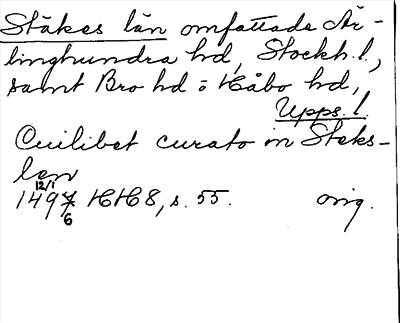 Stäkes län omfattade Är-
linghundra hd, Stockh. l.,
samt Bro hd o Håbo hd,
Upps. l.
Cuilibet curato in Steks-
len
12/1
1497 HH 8, s. 55. orig.
6